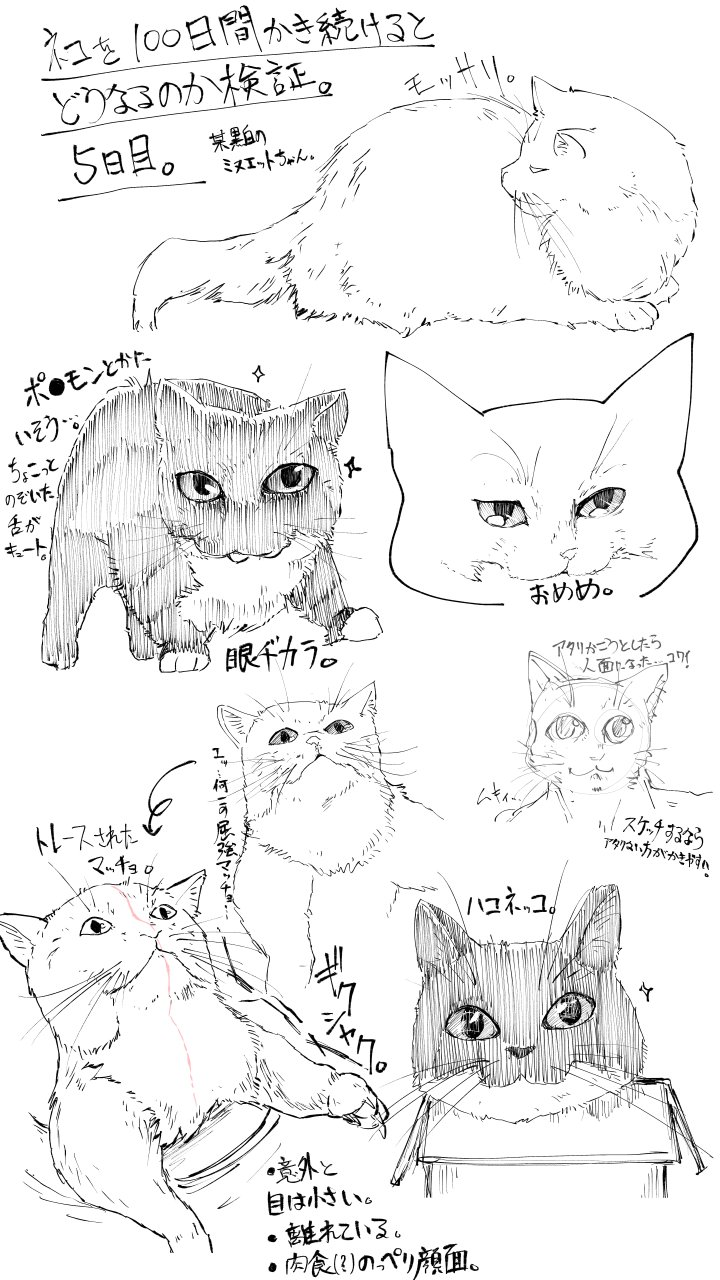 ネコを100日間かき続けると
どうなるのか検証。
5日目。
某黒白の
ミヌエットちゃん。
モッサリ。
ポ●モンとかに
いそう…。
ちょこっと
のぞいた
舌が
キュート。
眼ヂカラ。
おめめ。
アタリかこうとしたら
人面になった…コワ!
ムキィ…
スケッチするなら
アタリない方がかきやすい!
エッ…何この屈強マッチョ…
トレースされた
マッチョ。
ギク
シャク。
ハコネッコ。
・意外と
目は小さい。
・離れている。
・肉食(!?)のっぺり顔面。